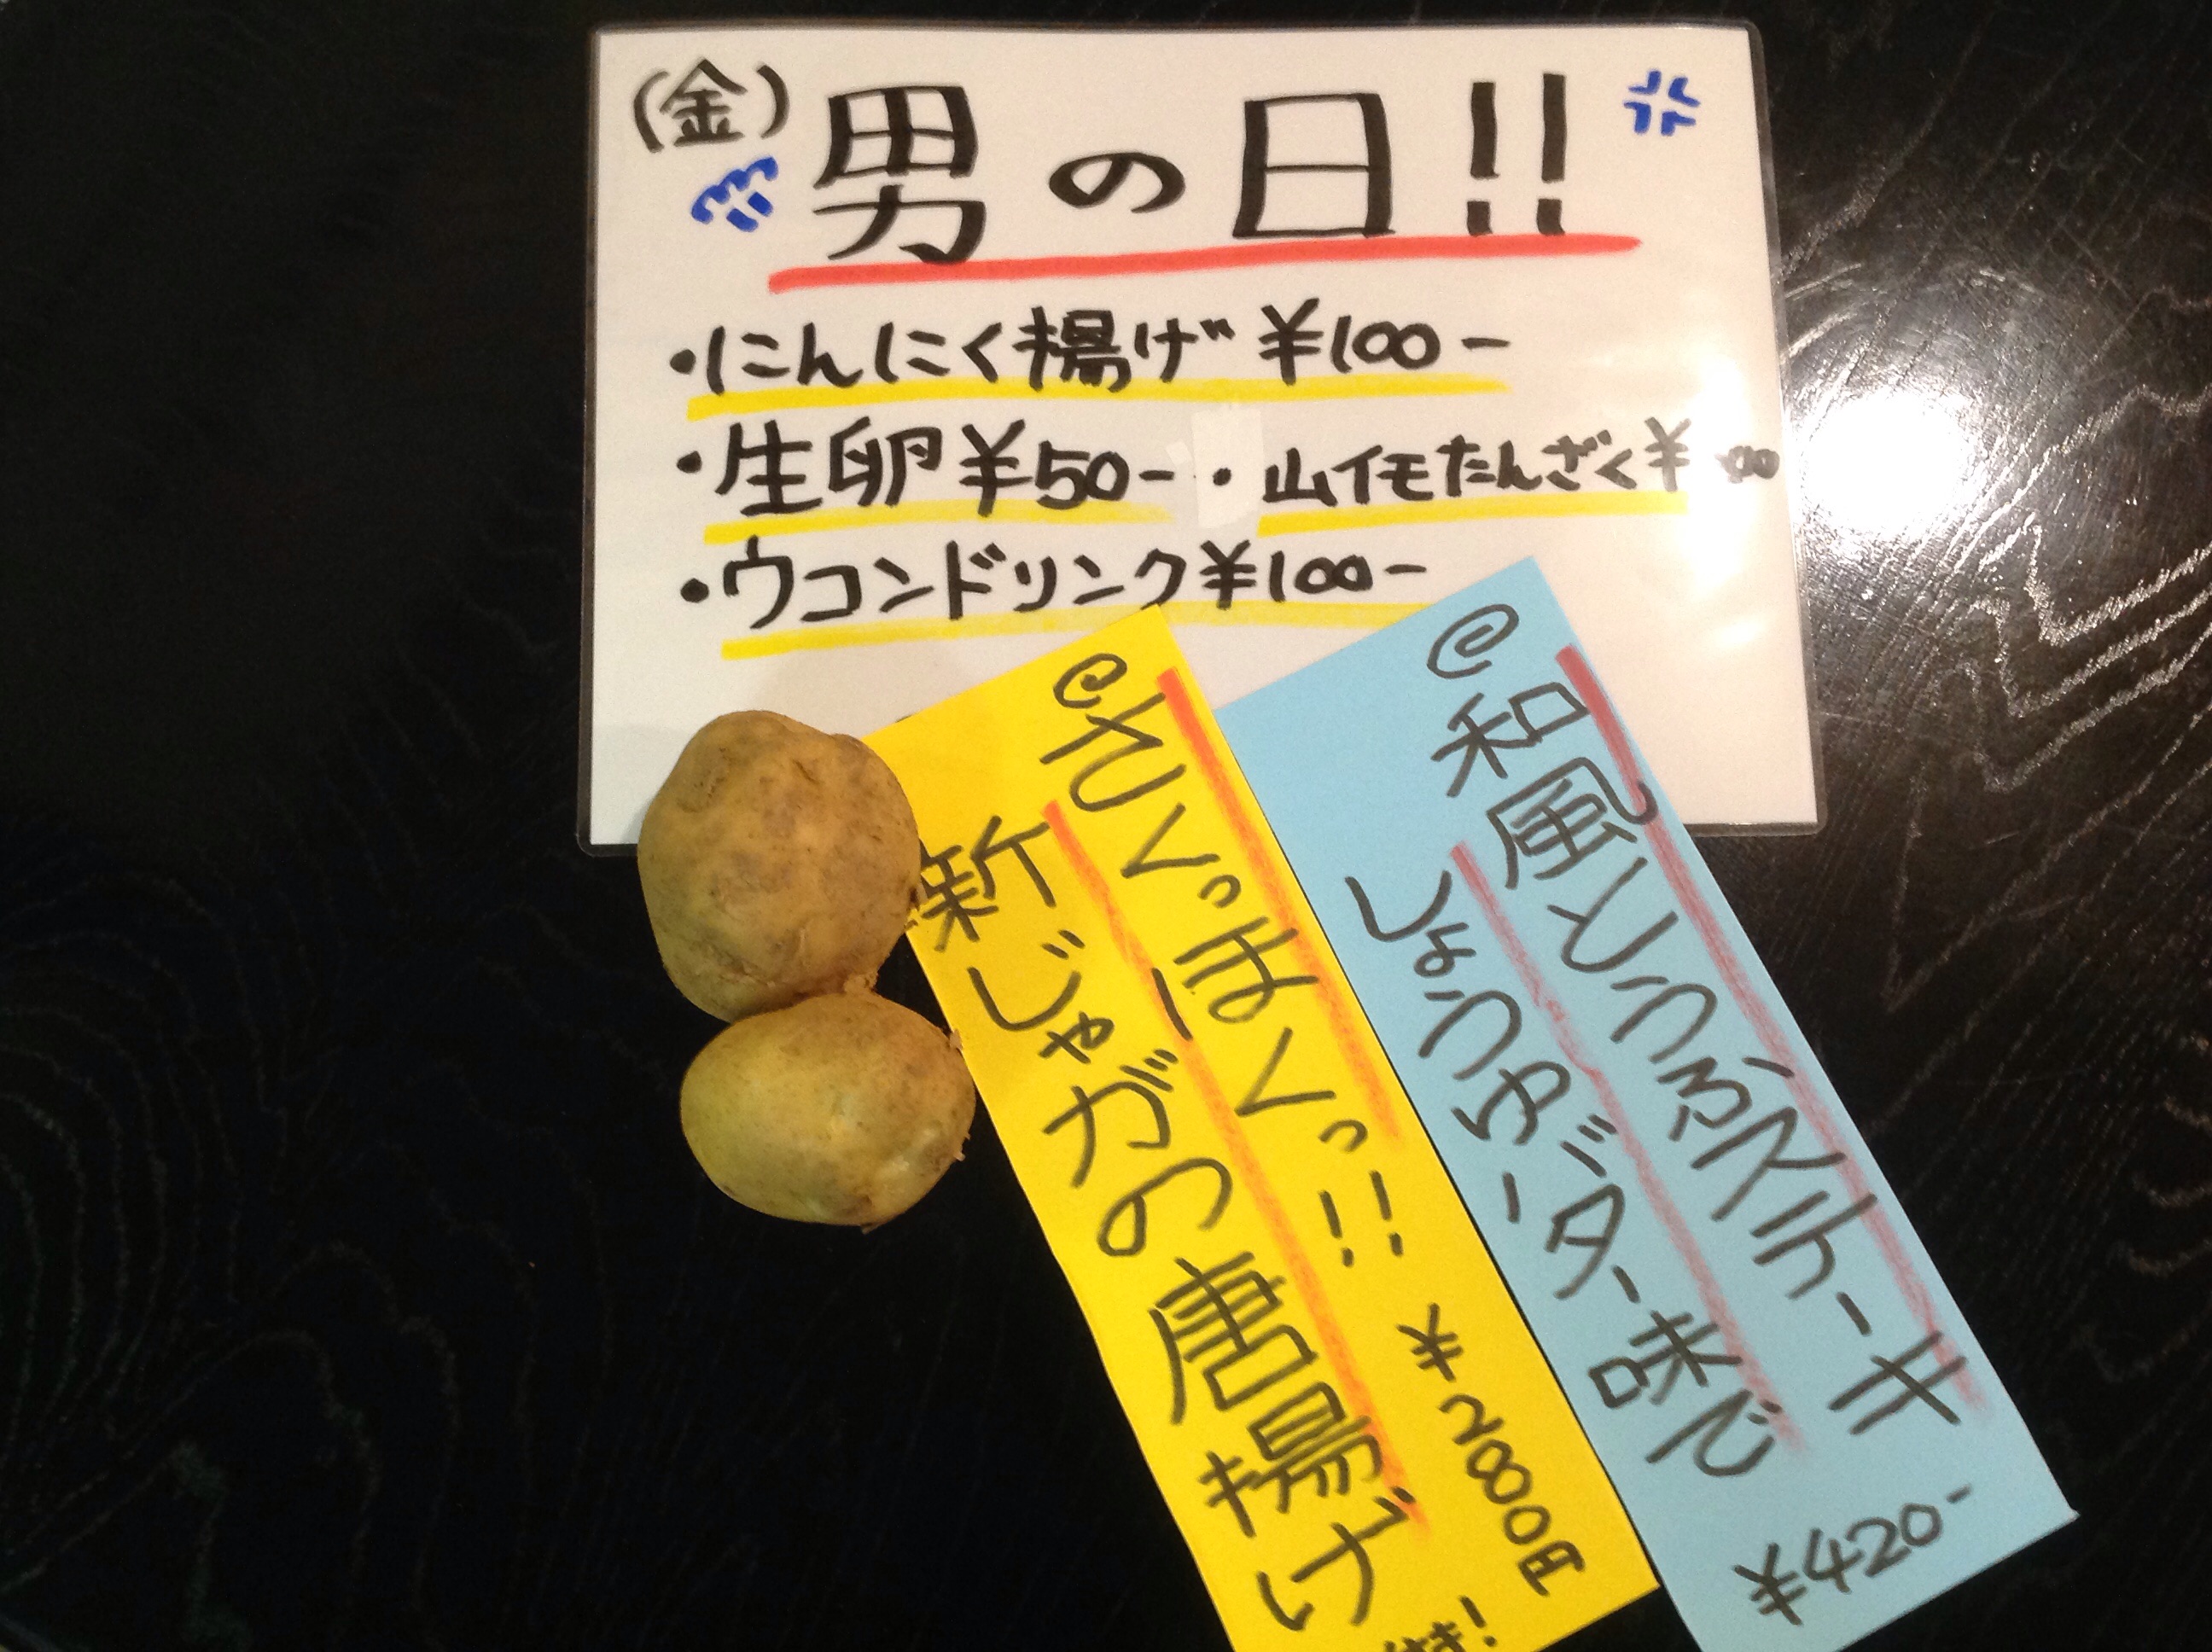 (金) 男の日!!
・にんにく揚げ ¥100-
・生卵¥50- ・山イモたんざく¥
・ウコンドリンク¥100-
@さくっほくっ!!
新じゃがの唐揚げ
¥280円
@和風とうふステーキ
しょうゆバター味で
¥420-